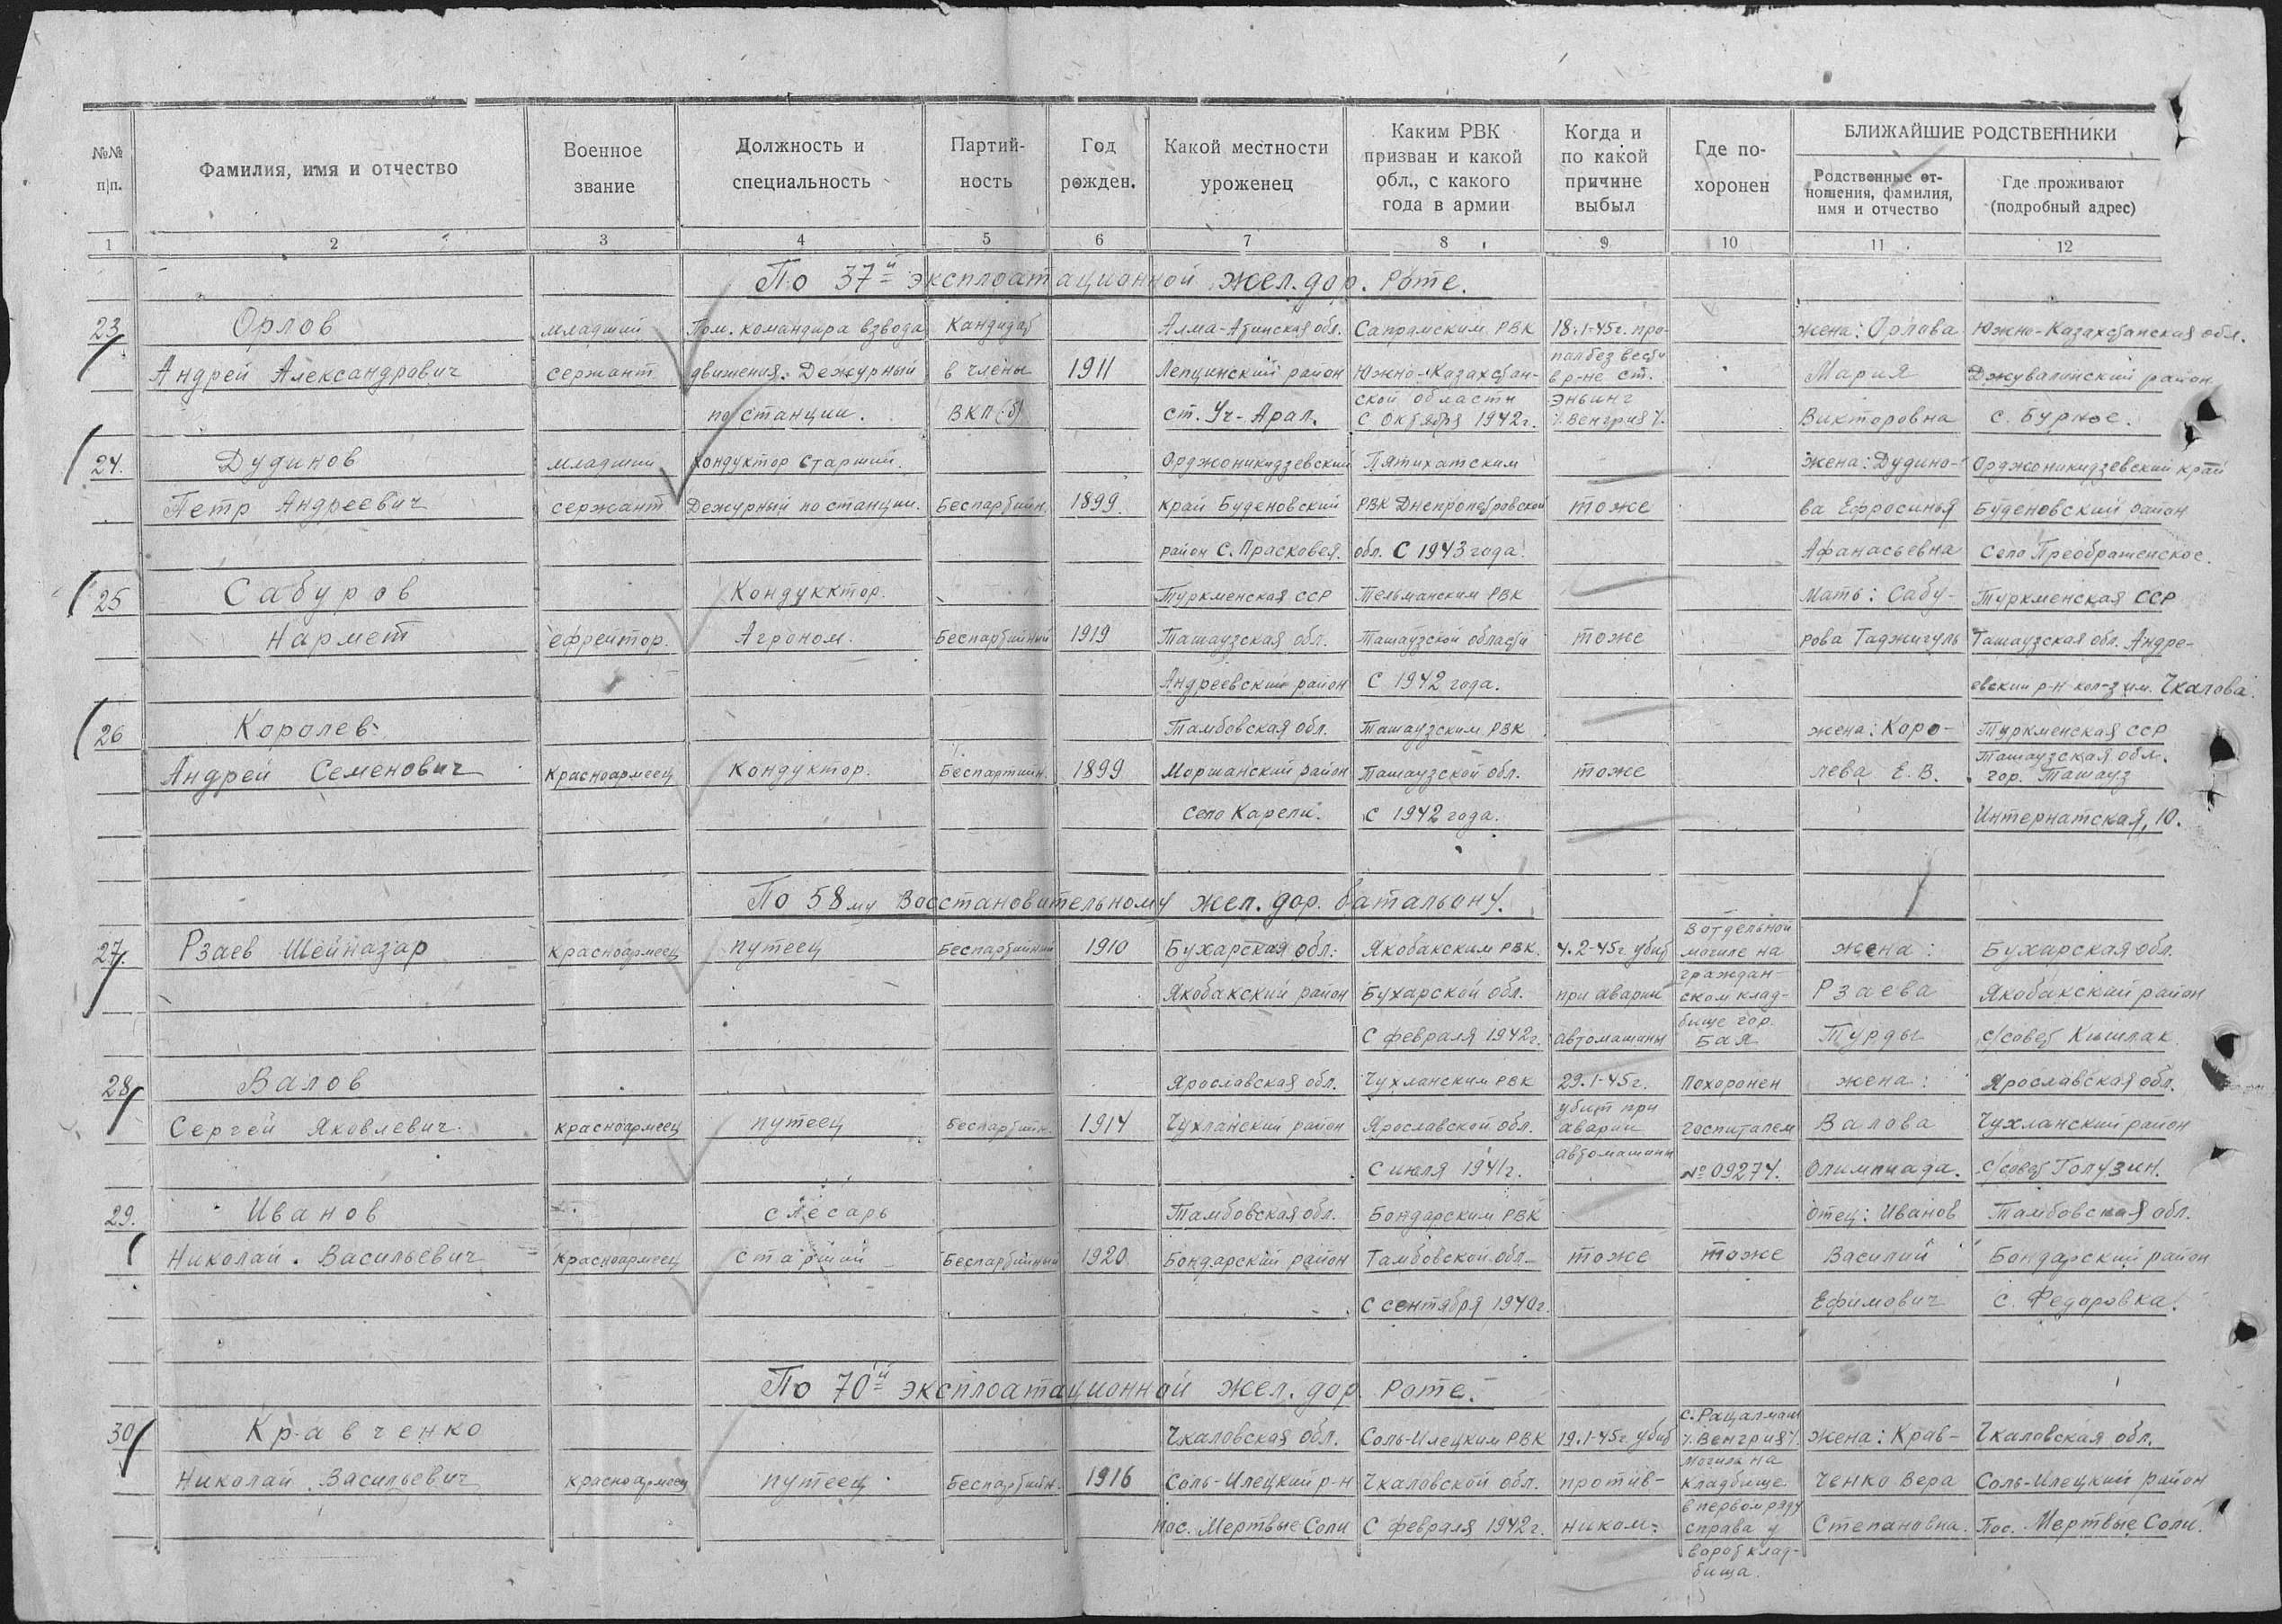 №№ п|п.
Фамилия, имя и отчество
Военное звание
Должность и специальность
Партий-ность
Год рожден.
Какой местности уроженец
Каким РВК призван и какой обл., с какого года в армии
Когда и по какой причине выбыл
Где по-хоронен
БЛИЖАЙШИЕ РОДСТВЕННИКИ
Родственные от-ношения, фамилия, имя и отчество
Где проживают (подробный адрес)
1 2 3 4 5 6 7 8 9 10 11 12
По 37й эксплоатационной жел. дор. роте.
23 Орлов младший Пом. командира взвода Кандидат Алма-Атинская обл. Сапрамским РВК 18.1-45г. про- жена: Орлова Южно-Казахстанская обл.
Андрей Александрович сержант движения. Дежурный в члены 1911 Лепцинский район Южно-Казахстан- пал без вести в р-не ст. Мария Джувалинский район
по станции. ВКП(б) ст. Уч-Арал. ской области с Октября 1942г. Эньинг /.Венгрия/. Викторовна с. Бурное.
24. Дудинов младший Кондуктор старший. Орджоникидзевский Пятихатским жена: Дудино- Орджоникидзевский край
Петр Андреевич сержант Дежурный по станции. Беспартийн. 1899 край Буденовский РВК Днепропетровской тоже ва Ефросинья Буденовский район
район с. Прасковея. обл. с 1943 года. Афанасьевна село Преображенское.
25 Сабуров Кондукктор. Туркменская ССР Тельманским РВК Мать: Сабу- Туркменская ССР
Нармет ефрейтор. Агроном. Беспартийный 1919 Ташаузская обл. Ташаузской области тоже рова Таджигуль Ташаузская обл. Андре-
Андреевский район С 1942 года. евский р-н кол-з им. Чкалова.
26 Королев Тамбовская обл. Ташаузским РВК жена: Коро- Туркменская ССР
Андрей Семенович Красноармеец Кондуктор. Беспартийн. 1899 Моршанский район Ташаузской обл. тоже лева Е. В. Ташаузская обл. гор. Ташауз
село Карели. с 1942 года. Интернатская, 10.
По 58му Восстановительному жел. дор. батальону.
27. Рзаев Шейназар Красноармеец путеец Беспартийный 1910 Бухарская обл. Якобакским РВК. 4.2-45г. убит В отдельной могиле на жена: Бухарская обл.
Якобакский район Бухарской обл. при аварии граждан-ском клад- Рзаева Якобакский район
С февраля 1942г. автомашины бище гор. Бая Турды с/совет Кишлак
28 Валов Ярославская обл. Чухланским РВК 29.1-45г. Похоронен жена: Ярославская обл.
Сергей Яковлевич. красноармеец путеец Беспартийн. 1914 Чухланский район Ярославской обл. убит при аварии госпиталем Валова Чухланский район
С июля 1941г. автомашины №09274. Олимпиада. с/совет Голузин.
29. Иванов слесарь Тамбовская обл. Бондарским РВК отец: Иванов Тамбовская обл.
Николай. Васильевич Красноармеец старший Беспартийный 1920 Бондарский район Тамбовской обл. тоже тоже Василий Бондарский район
С сентября 1940г. Ефимович с. Федоровка.
По 70й эксплоатационной жел. дор. Роте.
30 Кравченко Чкаловская обл. Соль-Илецким РВК 19.1-45г. убит с. Рацалмаш /.Венгрия/. жена: Крав- Чкаловская обл.
Николай Васильевич красноармеец путеец Беспартийн. 1916 Соль-Илецкий р-н Чкаловской обл. против- могила на кладбище ченко Вера Соль-Илецкий район
пос. Мертвые Соли С февраля 1942г. ником. в первом ряду справа у Степановна. Пос. Мертвые Соли.
ворот клад-
бища.